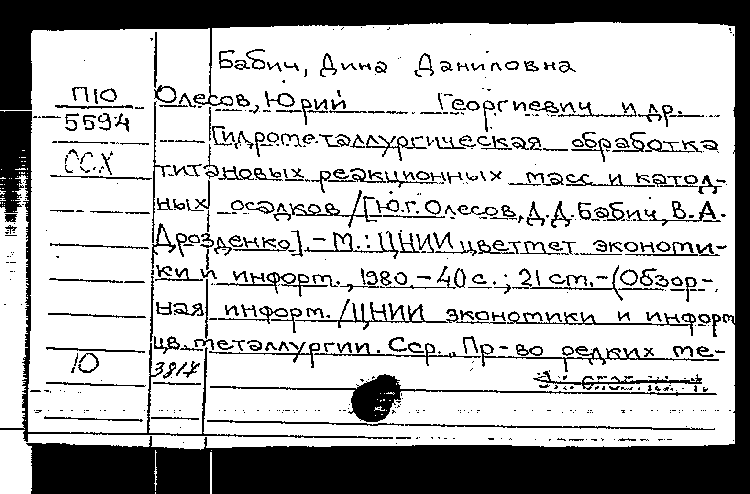 Бабич, Дина Даниловна
П10 Олесов, Юрий Георгиевич и др.
5594
Гидрометаллургическая обработка
СС.Х титановых реакционных масс и катод-
ных осадков /[Ю.Г. Олесов, Д.Д. Бабич, В.А.
Дрозденко]. – М.: ЦНИИцветмет экономи-
ки и информ., 1980. – 40 с.; 21 см. – (Обзор-
ная информ. /ЦНИИ экономики и информ
цв. металлургии. Сер., Пр-во редких ме-
10 3817